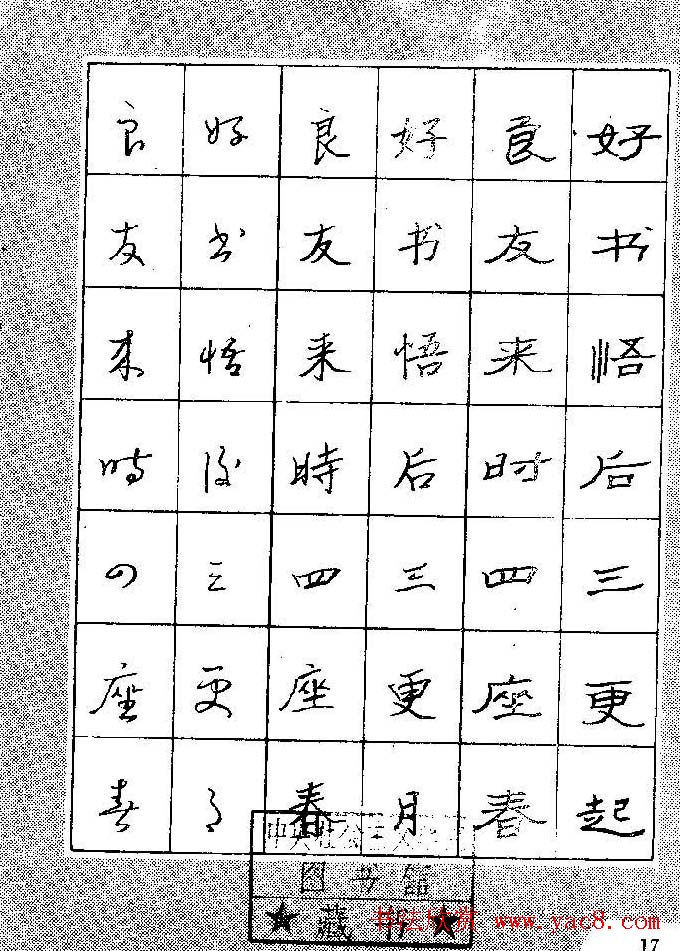 好书悟后三更起
良友来时四座春
好书悟后三更月
良友来時四座春
好书悟後三更月
良友来时四座春
图书馆
藏书
书法欣赏 www.yac8.com
17